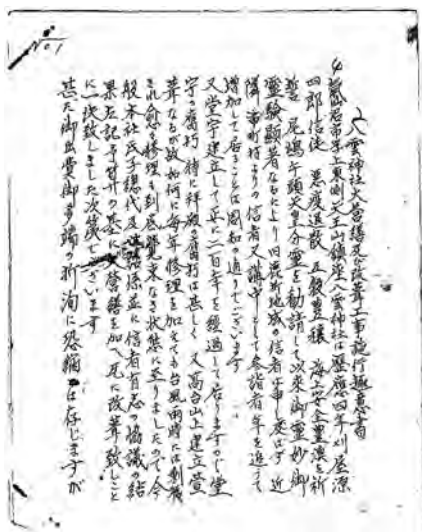 No 1
八雲神社大営繕及び改葺工事施行趣意書
尾上東側天王山鎮座八雲神社は暦應四年刈屋源
四郎信徒 悪疫退散 五穀豊穣 海上安全豊漁を祈
誓 尾嶋午頭天皇分霊を勧請して以来御霊妙御
霊験顕著なるにより旧 地域の信者は申し及ばず 近
隣市町村よりの信者又講中として参詣者年を追って
増加して居ることは周知の通りでございます
又堂宇建立して正に二百年を経過して居りますので堂
宇の腐朽 特に拝殿の腐朽は甚しく 又高台山上建立萱
葺なるが故 如何に毎年修理を加えても台風雨時には剥離
され愈々修理も到底覚束なき状態に至りましたので 今
般本社氏子總代及 並に信者有志の協議の結
果左記予算 の基に大営繕を加へ瓦に改葺致しこと
に一決致しました次第でございます
甚だ御出費御多端の折洵に恐縮とは存じますが